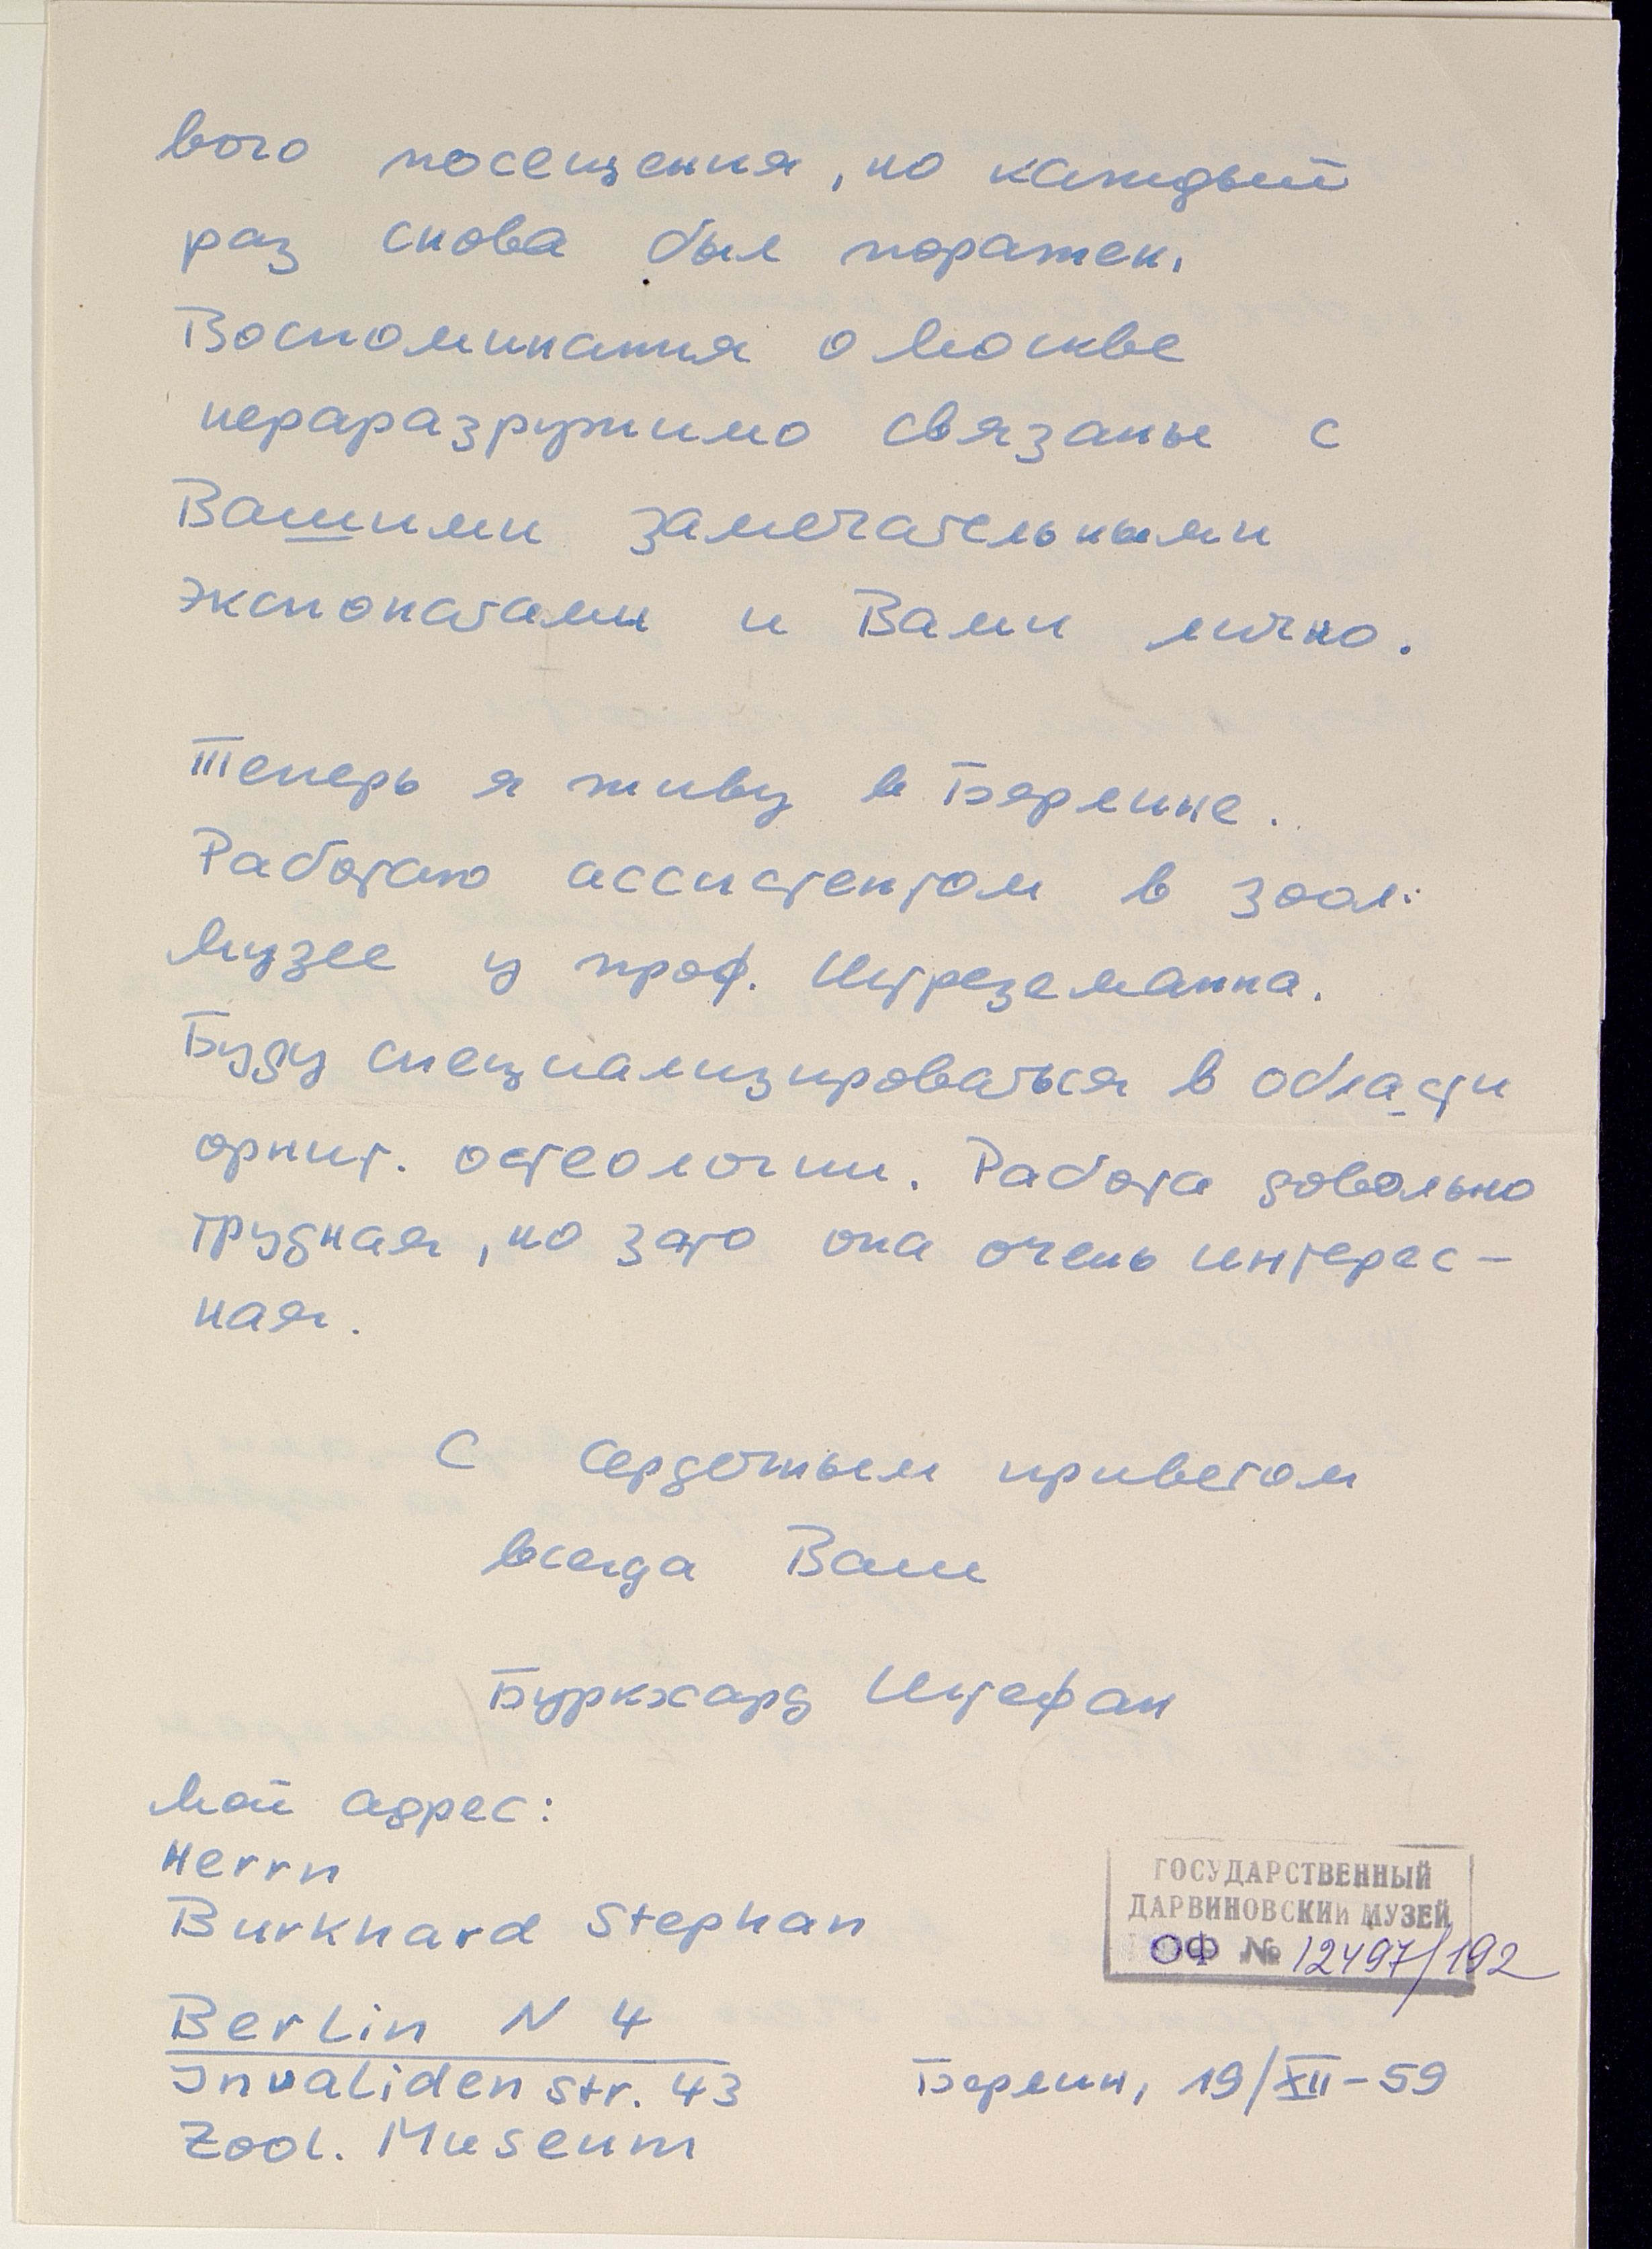 вого посещения, но каждый
раз снова был поражен.
Воспоминания о Москве
нераразружимо связаны с
Вашими замечательными
экспонатами и Вами лично.
Теперь я живу в Берлине.
Работаю ассистентом в зоол.
Музее у проф. Штреземанна.
Буду специализироваться в области
орнит. остеологии. Работа довольно
трудная, но зато она очень интерес-
ная.
С сердечным приветом
всегда Ваш
Буркхард Штефан
Мой адрес:
Herrn
Burkhard Stephan
ГОСУДАРСТВЕННЫЙ
ДАРВИНОВСКИЙ МУЗЕЙ
ОФ № 12497/192
Berlin N 4
Invalidenstr. 43
Берлин, 19/XII-59
Zool. Museum